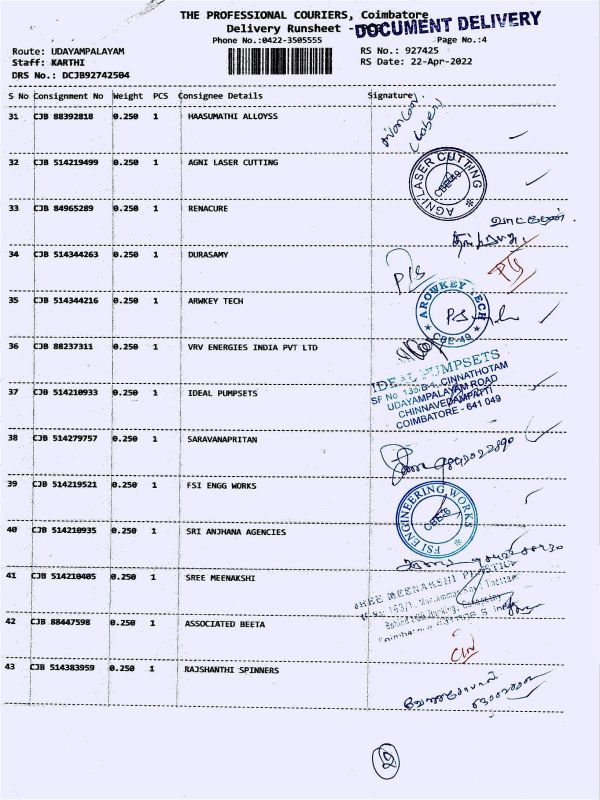 THE PROFESSIONAL COURIERS, Coimbatore
Delivery Runsheet -
DOCUMENT DELIVERY
Phone No.:0422-3505555
Page No.:4
Route: UDAYAMPALAYAM
RS No.: 927425
Staff: KARTHI
RS Date: 22-Apr-2022
DRS No.: DCJB92742504
S No Consignment No Weight PCS Consignee Details Signature
31 CJB 88392818 0.250 1 HAASUMATHI ALLOYSS
32 CJB 514219499 0.250 1 AGNI LASER CUTTING
AGNI LASER CUTTING
CBE-49
33 CJB 84965289 0.250 1 RENACURE
34 CJB 514344263 0.250 1 DURASAMY
P/S
P/S
35 CJB 514344216 0.250 1 ARWKEY TECH
AROWKEY TECH
CBE-49
36 CJB 88237311 0.250 1 VRV ENERGIES INDIA PVT LTD
37 CJB 514210933 0.250 1 IDEAL PUMPSETS
IDEAL PUMPSETS
SF No. 135/B-1, CINNATHOTAM
UDAYAMPALAYAM ROAD
CHINNAVEDAMPATTI
COIMBATORE - 641 049
38 CJB 514279757 0.250 1 SARAVANAPRITAN
39 CJB 514219521 0.250 1 FSI ENGG WORKS
FSI ENGINEERING WORKS
40 CJB 514210935 0.250 1 SRI ANJHANA AGENCIES
41 CJB 514210405 0.250 1 SREE MEENAKSHI
SREE MEENAKSHI
42 CJB 88447598 0.250 1 ASSOCIATED BEETA
43 CJB 514383959 0.250 1 RAJSHANTHI SPINNERS